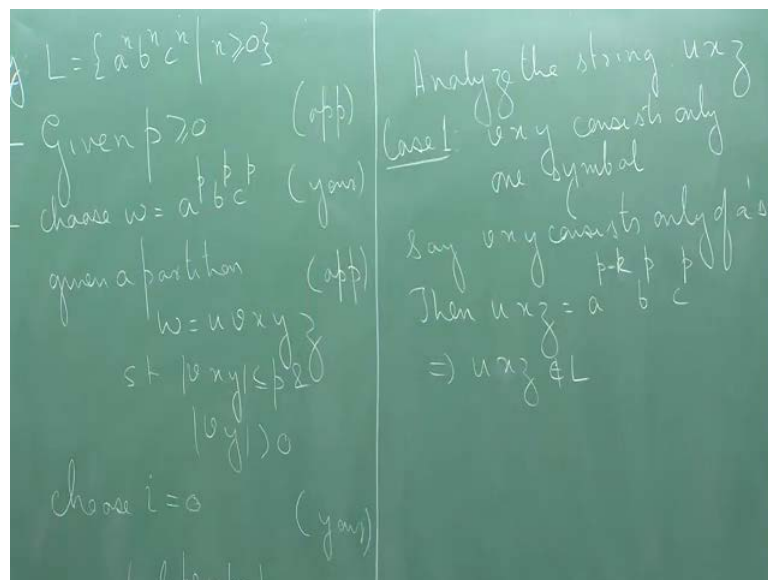 L = {aⁿbⁿcⁿ | n ≥ 0}
- Given p ≥ 0 (opp)
- choose w = aᵖbᵖcᵖ (your)
given a partition (opp)
w = uvxyz
st |vxy| ≤ p &
|vy| > 0
choose i = 0 (your)
Analyze the string uxz
Case 1: vxy consists only
one symbol
Say vxy consists only of a's
Then uxz = aᵖ⁻ᵏ bᵖ cᵖ
=> uxz ∉ L